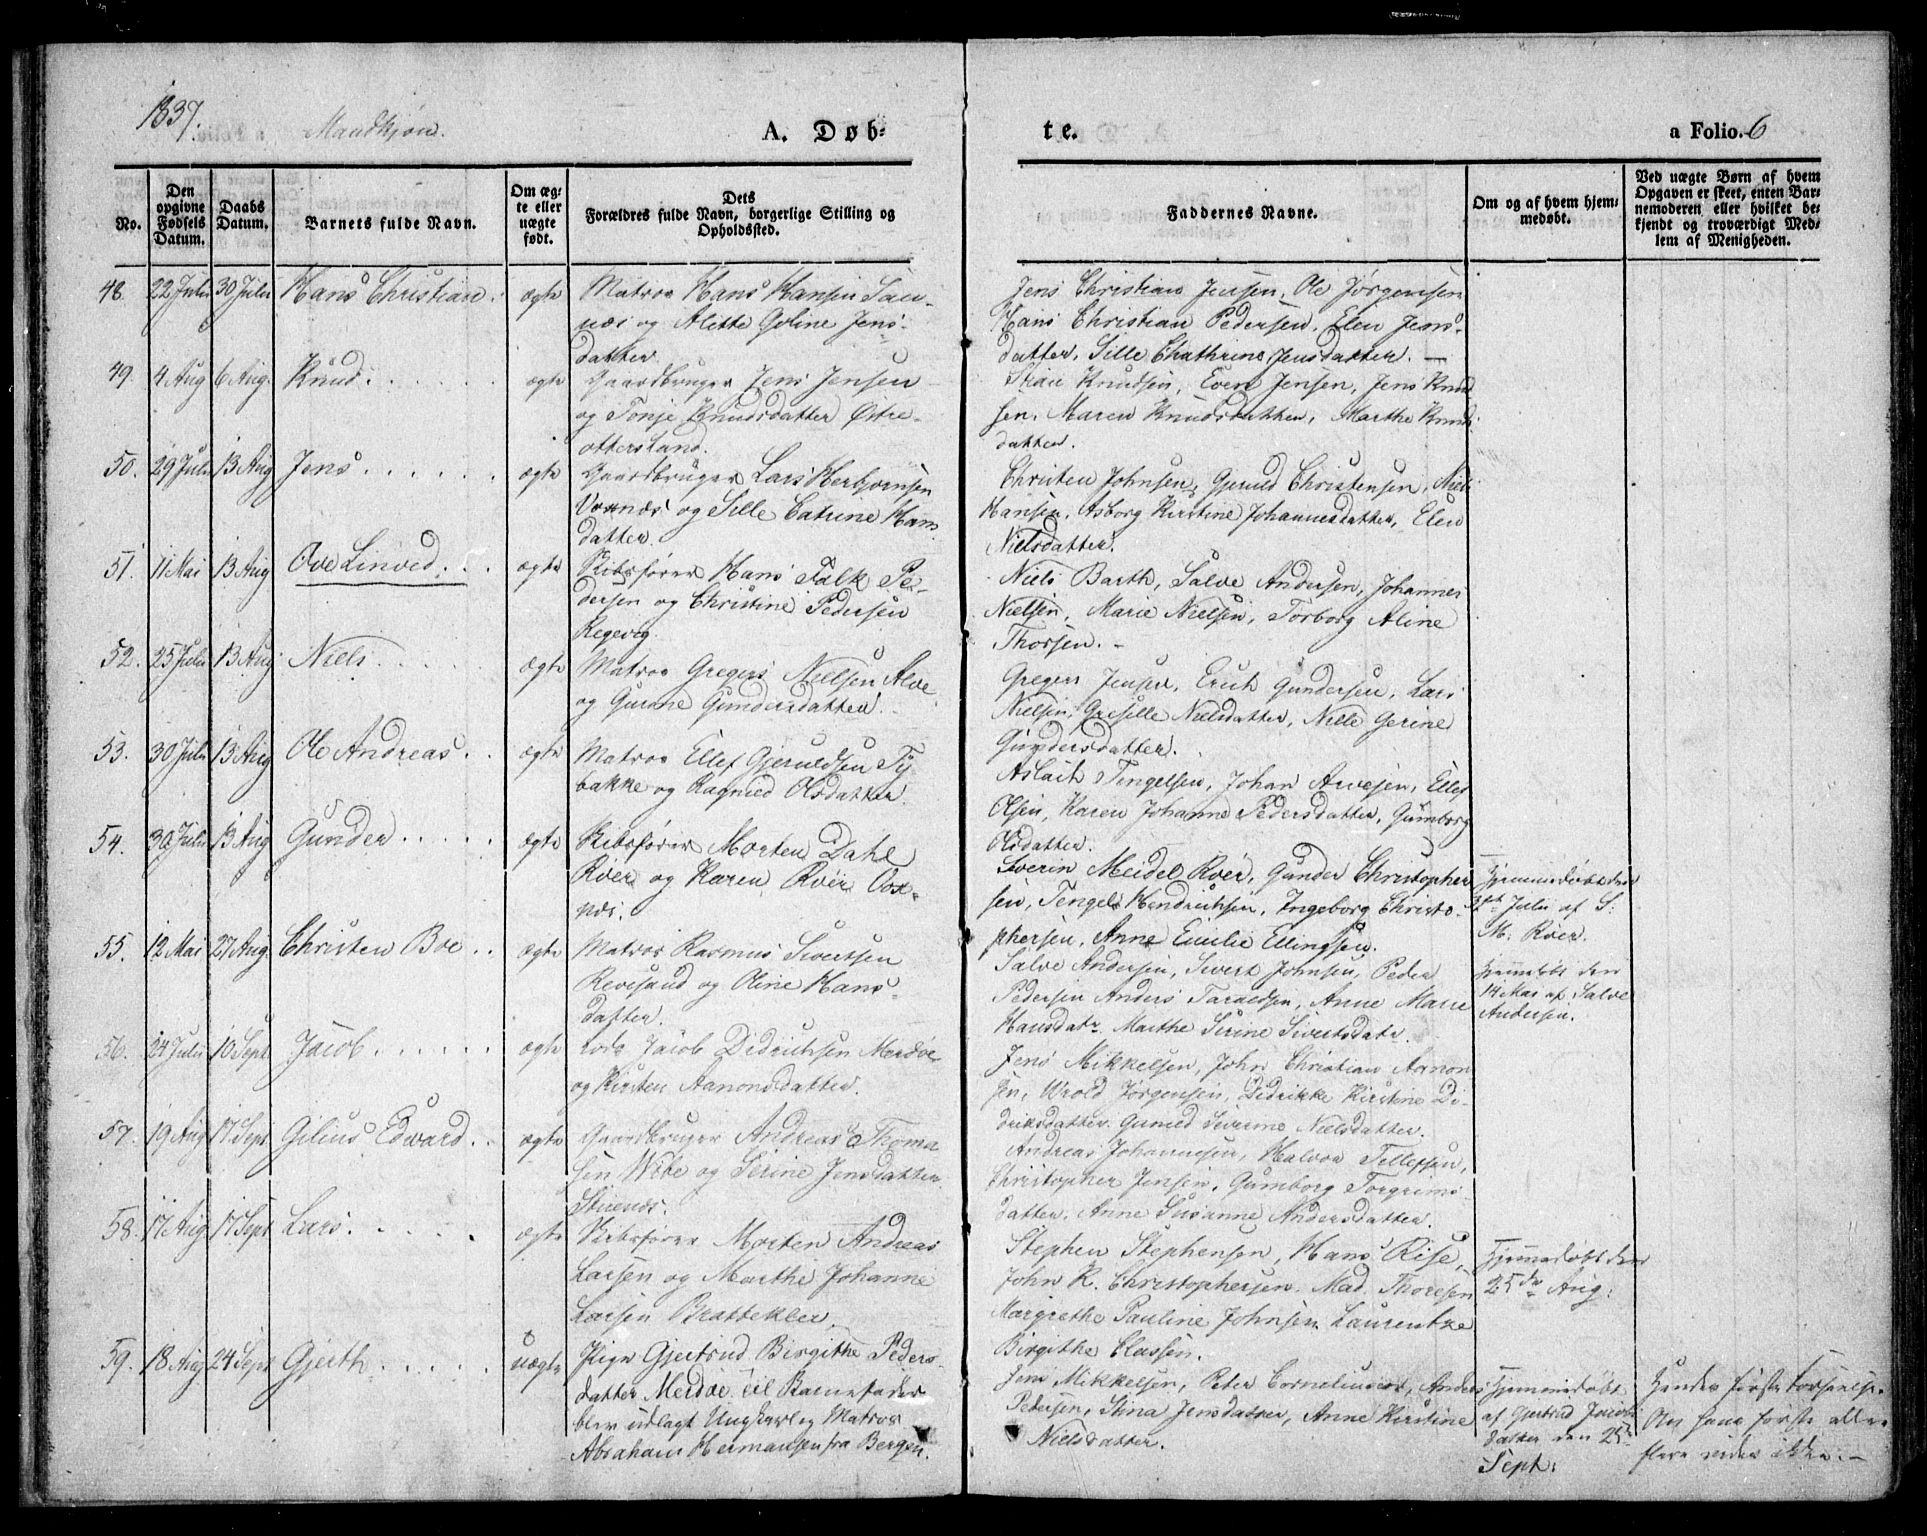 1837.
Mandkjøn.
A. Døb-
te.
a Folio. 6
No.
Den opgivne Fødsels Datum.
Daabs Datum.
Barnets fulde Navn.
Om ægte eller uægte født.
Dets Forældres fulde Navn, borgerlige Stilling og Opholdssted.
Faddernes Navne.
Om og af hvem hjemmedøbt.
Ved uægte Børn af hvem Opgaven er skeet, enten Barnemoderen eller hvilket bekjendt og troværdigt Medlem af Menigheden.
48. 22 Juli 30 Juli Hans Christian. ægte Matros Hans Hansen
og Alette Goline Jens-
datter.
Jens Christian Jensen, Ole Jørgensen
Hans Christian Pedersen, Elen Jens-
datter, Sille Chathrine Jensdatter. —
49. 4 Aug 6 Aug. Knud. ægte Gaardbruger Jens Jensen
og Tonje Knudsdatter Østre-
ottersland.
Knudsen, Even Jensen, Jens Knud
sen, Maren Knudsdatter, Marthe Knuds
datter.
50. 29 Juli 13 Aug Jens ægte Gaardbruger Lars Herbjørnsen
Voxnæs og Sille Catrine Hans
datter.
Christen Johnsen, Gjeruld Christensen, Niels
Hansen, Asborg Kirstine Johannesdatter, Elen
Nielsdatter.
51. 11 Mai 13 Aug Ove Linved. ægte Skibsfører Hans Falk Pe-
dersen og Christine Pedersen
Regevig.
Niels Barth, Salve Andersen, Johannes
Nielsen, Marie Nielsen, Torborg Aline
Thorsen. -
52. 25 Juli 13 Aug Niels ægte Matros Gregers Nielsen Alve
og Gunne Gundersdatter.
Gregers Jensen, Erich Gundersen, Lars
Nielsen, Greselle Nielsdatter, Nille Gerine
Gundersdatter.
53. 30 Juli 13 Aug Ole Andreas ægte Matros Ellef Gjeruldsen Ty
bakke og Ragnild Olsdatter.
Aslach Tengelsen, Johan Arvesen, Ellef
Olsen, Karen Johanne Pedersdatter, Gumborg
Olsdatter.
54. 30 Juli 13 Aug Gunder ægte Skibsfører Morten Dahl
Røer og Karen Røer Vox-
næs.
Severin Meidel Røer, Gunder Christopher
sen, Tengel Hendrichsen, Ingeborg Christo-
phersen, Anne Emilie Ellingsen.
Hjemmedøbt den
31te Juli af S:
M. Røer.
55. 12 Mai 27 Aug. Christen Boe ægte Matros Rasmus Sivertsen
Revesand og Oline Hans-
datter.
Salve Andersen, Sivert Johnsen, Peder
Pedersen Anders Taraldsen, Anne Marie
Hansdatr. Marthe Serine Sivertsdatr.
Hjemmedøbt den
14 Mai af Salve
Andersen.
56. 24 Juli 10 Sept Jacob ægte Lods Jacob Didrichsen Merdøe
og Kirsten Aanonsdatter.
Jens Mikkelsen, John Christian Aanon
sen, Wrold Jørgensen, Didrikke Kirstine Di-
driksdatter. Gunild Severine Nielsdatter.
57. 19 Aug 17 Sept Gilius Edward ægte Gaardbruger Andreas Thoma
sen Wibe og Serine Jensdatter
Stuenæs.
Andreas Johannesen, Halvor Tellefsen,
Christopher Jensen, Gumborg Torgrims-
datter. Anne Susanne Andersdatter.
58. 17 Aug 17 Sept Lars ægte Skibsfører Morten Andreas
Larsen og Marthe Johanne
Larsen Brattekler.
Stephen Stephensen, Hans Rise,
John K. Christophersen. Mad. Thoresen
Margrethe Pauline Johnsen Laurentze
Birgithe Classen.
Hjemmedøbt den
25de Aug:
59. 18 Aug 24 Sept Gjerth uægte Pige Gjertrud Birgithe Peders-
datter Merdøe til Barnefader
blev udlagt Ungkarl og Matros
Abraham Hermansen fra Bergen.
Jens Mikkelsen, Peter Corneliussen, Anders
Pedersen, Stina Jensdatter, Anne Kirstine
Nielsdatter.
Hjemmedøbt
af Gjertrud Jacobs
datter den 25
Sept:
Hendes første Forseelse.
Om hans første eller
flere vides ikke. -